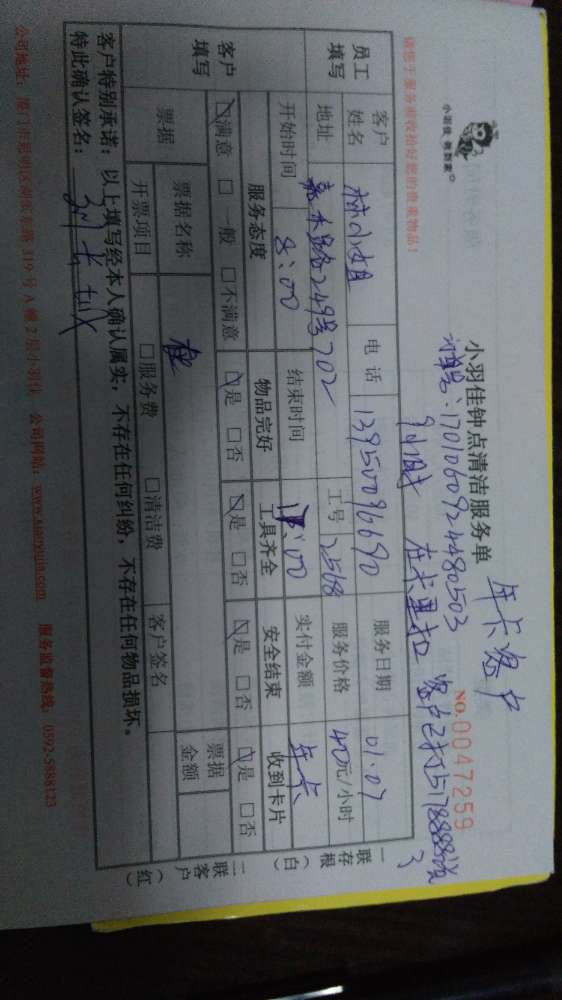 小羽佳 传到家
年卡客户
小羽佳钟点清洁服务单
NO.0047259
订单号:17010609244480503
请您于服务前收拾好您的贵重物品!
9小时 在卡里扣
员工填写
客户姓名 林小姐 电话 13950096690 服务日期 01.07
地址 嘉禾路249号702 工号 2568 服务价格 40元/小时
开始时间 8:00 结束时间 :00 实付金额 年卡
客户填写
服务态度 物品完好 工具齐全 安全结束 收到卡片
☑满意 □一般 □不满意 ☑是 □否 ☑是 □否 ☑是 □否 ☑是 □否
票据 票据名称 票据金额
开票项目 □服务费 □清洁费 客户签名
客户特别承诺:以上填写经本人确认属实,不存在任何纠纷,不存在任何物品损坏。
特此确认签名:
一联存根(白) 二联客户(红)
公司地址:厦门市思明区湖滨南路319号A幢2层小羽佳 公司网站:www.xiaoyujia.com 服务监督热线:0592-5988123